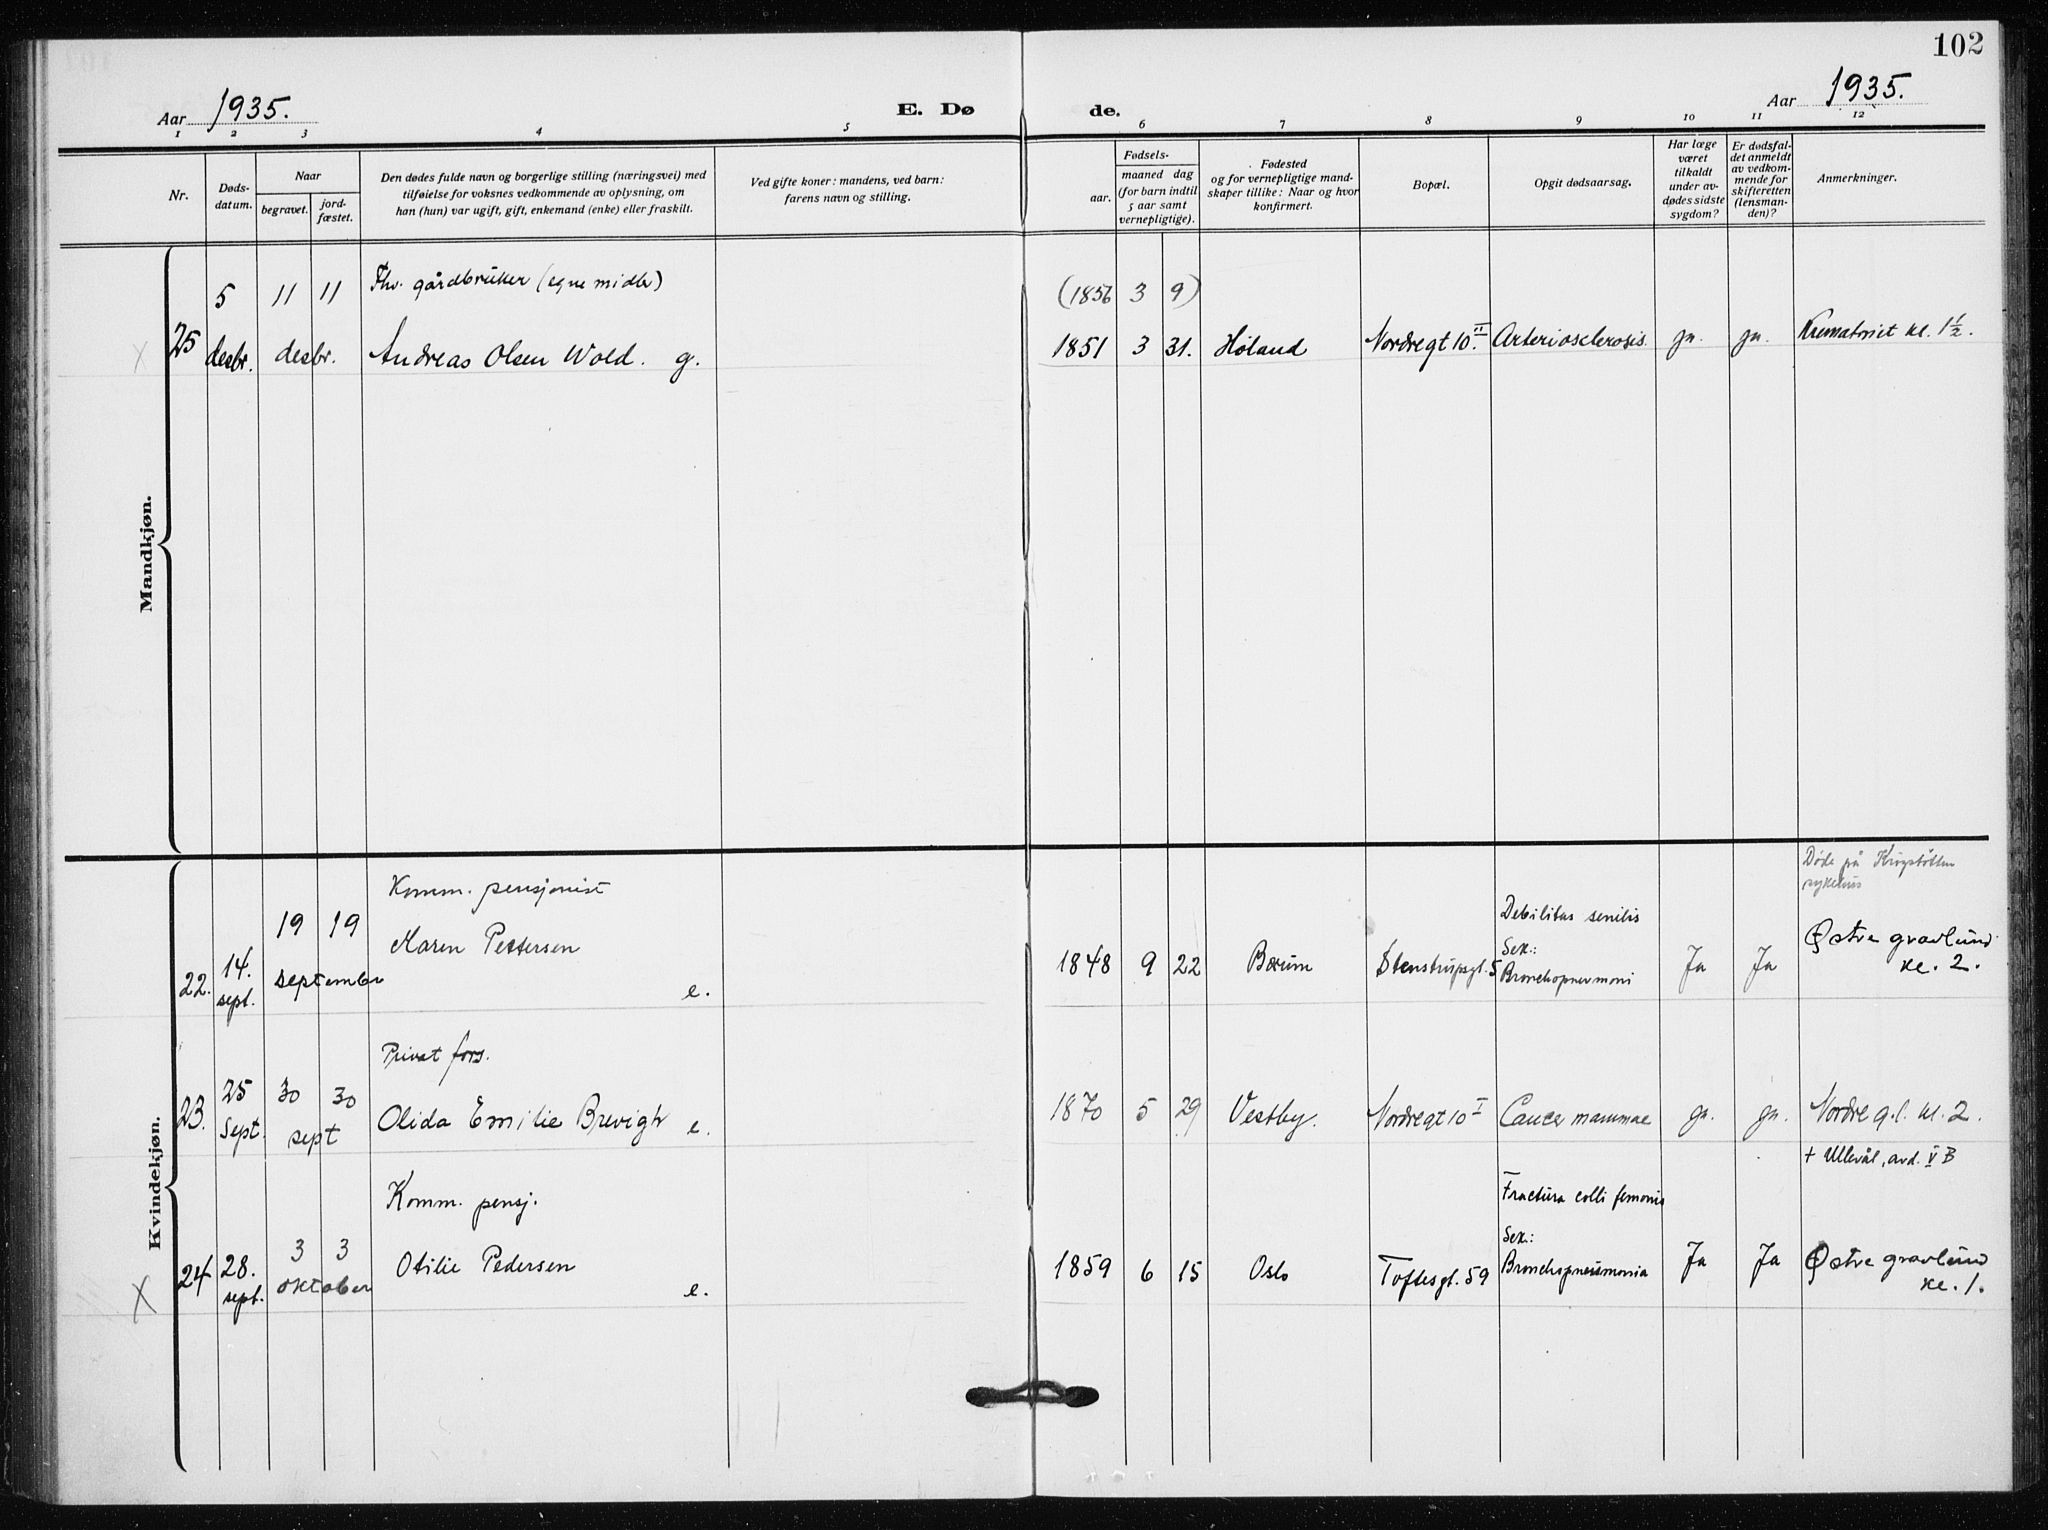 102
Aar 1935.
E. Dø de.
Aar 1935.
1 2 3 4 5 6 7 8 9 10 11 12
Nr.
Døds-
datum.
Naar
begravet.
jord-
fæstet.
Den dødes fulde navn og borgerlige stilling (næringsvei) med
tilføielse for voksnes vedkommende av oplysning, om
han (hun) var ugift, gift, enkemand (enke) eller fraskilt.
Ved gifte koner: mandens, ved barn:
farens navn og stilling.
Fødsels-
aar.
maaned dag
(for barn indtil
5 aar samt
vernepligtige).
Fødested
og for vernepligtige mand-
skaper tillike: Naar og hvor
konfirmert.
Bopæl.
Opgit dødsaarsag.
Har læge
været
tilkaldt
under av-
dødes sidste
sygdom?
Er dødsfal-
det anmeldt
av vedkom-
mende for
skifteretten
(lensman-
den)?
Anmerkninger.
Mandkjøn.
5 11 11 Fhv. gårdbruker (egne midler) (1856 3 9)
25 desbr. desbr. Andreas Olsen Wold. g. 1851 3 31. Høland Nordregt 10 II. Arteriosclerosis. ja. ja. Krematoriet kl. 1 1/2.
Kvindekjøn.
Døde på
sykehus
Komm. pensjonist
19 19 Debilitas senilis
22. 14. sept. september Maren Pettersen e. 1848 9 22 Bærum Stenstrupsgt. 5 Sek.: Bronchopneumoni Ja Ja Østre gravlund
kl. 2.
Privat fors.
23. 25 Sept. 30 30 sept Olida Emilie Brevigh e. 1870 5 29 Vestby. Nordregt 10 I Cancer mammae ja. ja. Nordre g.l. kl. 2.
+ Ullevål, avd. V B
Komm. pensj. Fractura colli femoris
24 28. sept. 3 3 oktober Otilie Pedersen e. 1859 6 15 Oslo Toftesgt. 59 Sek.: Bronchopneumonia Ja Ja Østre gravlund
kl. 1.